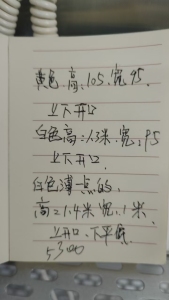 黄色.高:105.宽95.
上下开口
白色高=1.3米.宽:95
上下开口.
白色薄一点的.
高=1.4米宽.1米.
上开口.下平底
5300